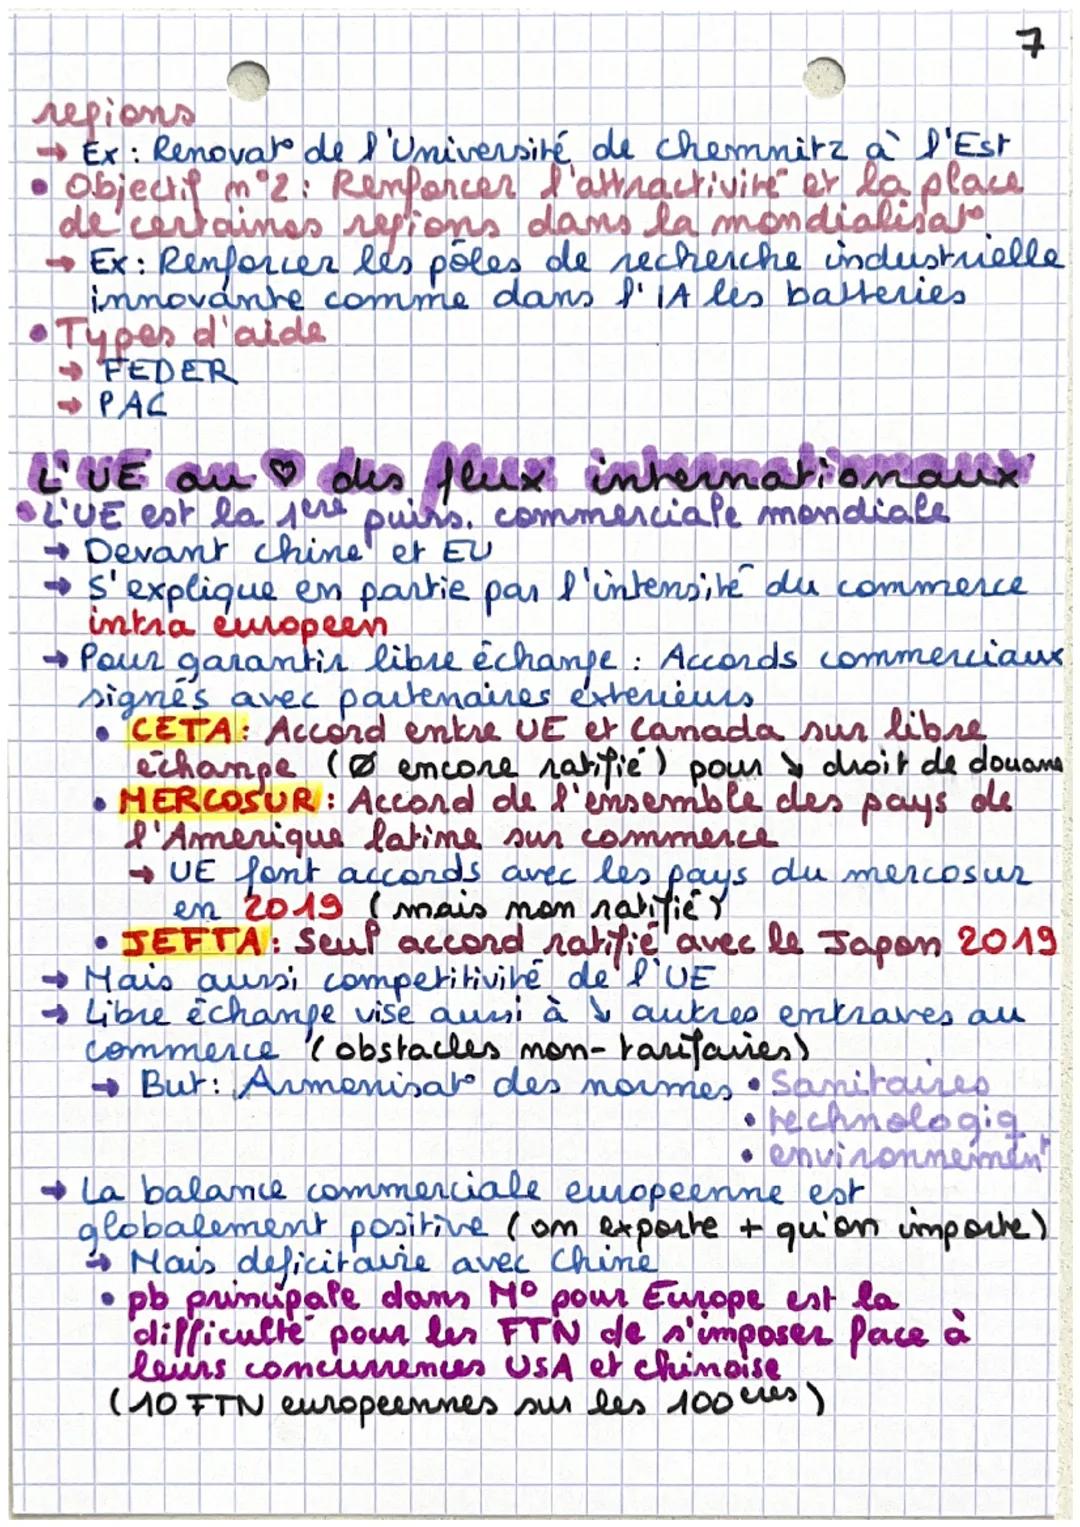 7
regions
→ Ex : Renovat° de l'Université de chemnitz à l'Est
• Objectif n°2 : Renforcer l'attractivité et la place
de certaines regions dans la mondialisat°
→ Ex : Renforcer les pôles de recherche industrielle
innovante comme dans l'IA les batteries
• Types d'aide
→ FEDER
→ PAC
L'UE au ♡ des flux internationaux
• L'UE est la 1ere puiss. commerciale mondiale
→ Devant chine et EU
→ S'explique en partie par l'intensité du commerce
intra europeen
→ Pour garantir libre échange : Accords commerciaux
signés avec partenaires exterieurs
• CETA : Accord entre UE et Canada sur libre
échange (Ø encore ratifié) pour ↘ droit de douane
• MERCOSUR : Accord de l'ensemble des pays de
l'Amerique latine sur commerce
→ UE font accords avec les pays du mercosur
en 2019 (mais non ratifié)
• JEFTA : Seul accord ratifié avec le Japon 2019
→ Mais aussi competitivité de l'UE
→ Libre échange vise aussi à ↘ autres entraves au
commerce (obstacles non-tarifaires)
→ But : Armonisat° des normes • Sanitaires
• technologiq
• environnement
→ La balance commerciale europeenne est
globalement positive (on exporte + qu'on importe)
→ Mais deficitaire avec Chine
• pb principale dans M° pour Europe est la
difficulté pour les FTN de s'imposer face à
leurs concurrences USA et chinoise
(10 FTN europeennes sur les 100 eres)